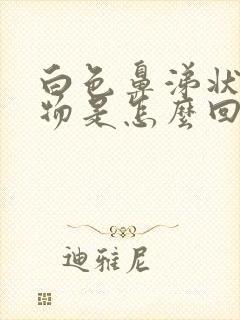 白色鼻涕状
物是怎麼回
迪雅尼